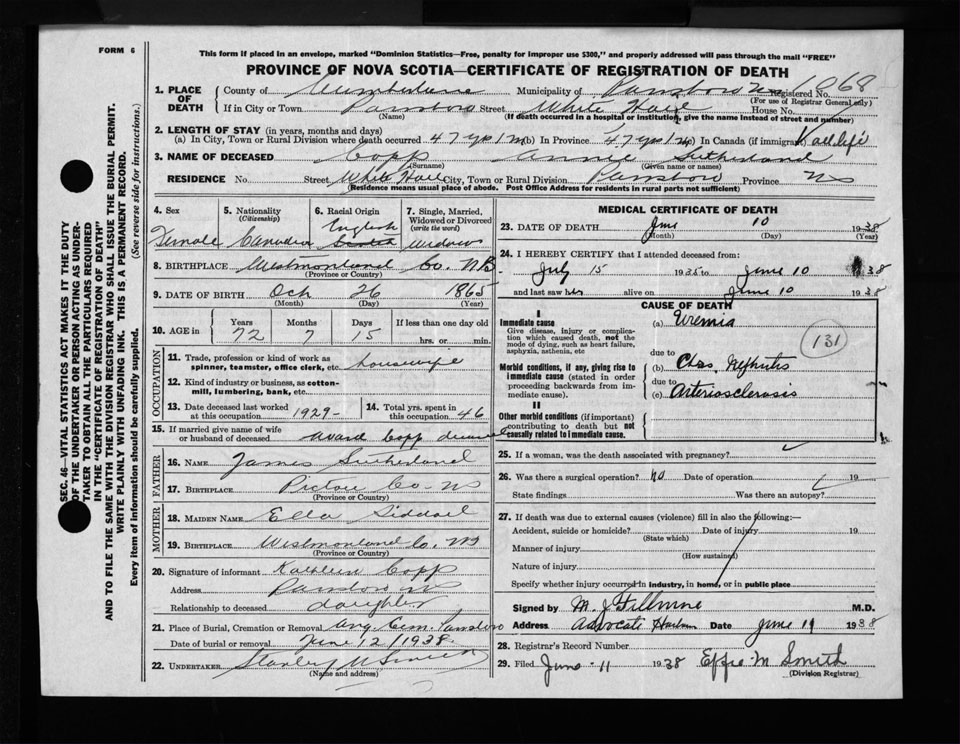 FORM 6
This form if placed in an envelope, marked "Dominion Statistics—Free, penalty for improper use $300," and properly addressed will pass through the mail "FREE"
PROVINCE OF NOVA SCOTIA—CERTIFICATE OF REGISTRATION OF DEATH
1. PLACE OF DEATH
County of Cumberland Municipality of Parrsboro NS Registered No. 1068
(For use of Registrar General only)
If in City or Town Parrsboro Street White Hall House No.
(Name) (If death occurred in a hospital or institution, give the name instead of street and number)
2. LENGTH OF STAY (in years, months and days)
(a) In City, Town or Rural Division where death occurred 47 yrs 1 m (b) In Province 47 yrs 1 m (c) In Canada (if immigrant) all life
3. NAME OF DECEASED Copp Annie Sutherland
(Surname) (Given name or names)
RESIDENCE No. Street White Hall City, Town or Rural Division Parrsboro Province NS
(Residence means usual place of abode. Post Office Address for residents in rural parts not sufficient)
4. Sex Female
5. Nationality (Citizenship) Canadian
6. Racial Origin English Scotch
7. Single, Married, Widowed or Divorced (write the word) Widow
8. BIRTHPLACE Westmorland Co. N.B.
(Province or Country)
9. DATE OF BIRTH Oct 26 1865
(Month) (Day) (Year)
10. AGE in Years Months Days If less than one day old
72 7 15 hrs. or min.
OCCUPATION
11. Trade, profession or kind of work as spinner, teamster, office clerk, etc. housewife
12. Kind of industry or business, as cotton-mill, lumbering, bank, etc.
13. Date deceased last worked at this occupation 1929-
14. Total yrs. spent in this occupation 46
15. If married give name of wife or husband of deceased Avard Copp deceased
FATHER
16. NAME James Sutherland
17. BIRTHPLACE Pictou Co NS
(Province or Country)
MOTHER
18. MAIDEN NAME Ella Siddall
19. BIRTHPLACE Westmorland Co.
(Province or Country)
20. Signature of informant Kathleen Copp
Address Parrsboro NS
Relationship to deceased daughter
21. Place of Burial, Cremation or Removal Ang. Cem. Parrsboro
Date of burial or removal June 12/1938.
22. UNDERTAKER Stanley
(Name and address)
MEDICAL CERTIFICATE OF DEATH
23. DATE OF DEATH June 10 1938
(Month) (Day) (Year)
24. I HEREBY CERTIFY that I attended deceased from:
July 15 1935 to June 10 1938
and last saw her alive on June 10 1938
CAUSE OF DEATH
I
Immediate cause
Give disease, injury or complication which caused death, not the mode of dying, such as heart failure, asphyxia, asthenia, etc
(a) Uremia
131
due to
Morbid conditions, if any, giving rise to immediate cause (stated in order proceeding backwards from immediate cause).
(b) Chas Nephritis
due to
(c) Arteriosclerosis
II
Other morbid conditions (if important) contributing to death but not causally related to immediate cause.
25. If a woman, was the death associated with pregnancy?
26. Was there a surgical operation? No Date of operation 19
State findings Was there an autopsy?
27. If death was due to external causes (violence) fill in also the following:—
Accident, suicide or homicide? Date of injury 19
(State which)
Manner of injury
(How sustained)
Nature of injury
Specify whether injury occurred in industry, in home, or in public place
Signed by M. J. Fillmore M.D.
Address Advocate Harbour Date June 11 1938
28. Registrar's Record Number
29. Filed June 11 1938 Effie M Smith
(Division Registrar)
SEC. 46—VITAL STATISTICS ACT MAKES IT THE DUTY
OF THE UNDERTAKER OR PERSON ACTING AS UNDER-
TAKER TO OBTAIN ALL THE PARTICULARS REQUIRED
IN THE "CERTIFICATE OF REGISTRATION OF DEATH"
AND TO FILE THE SAME WITH THE DIVISION REGISTRAR WHO SHALL ISSUE THE BURIAL PERMIT.
WRITE PLAINLY WITH UNFADING INK. THIS IS A PERMANENT RECORD.
Every item of information should be carefully supplied. (See reverse side for instructions.)